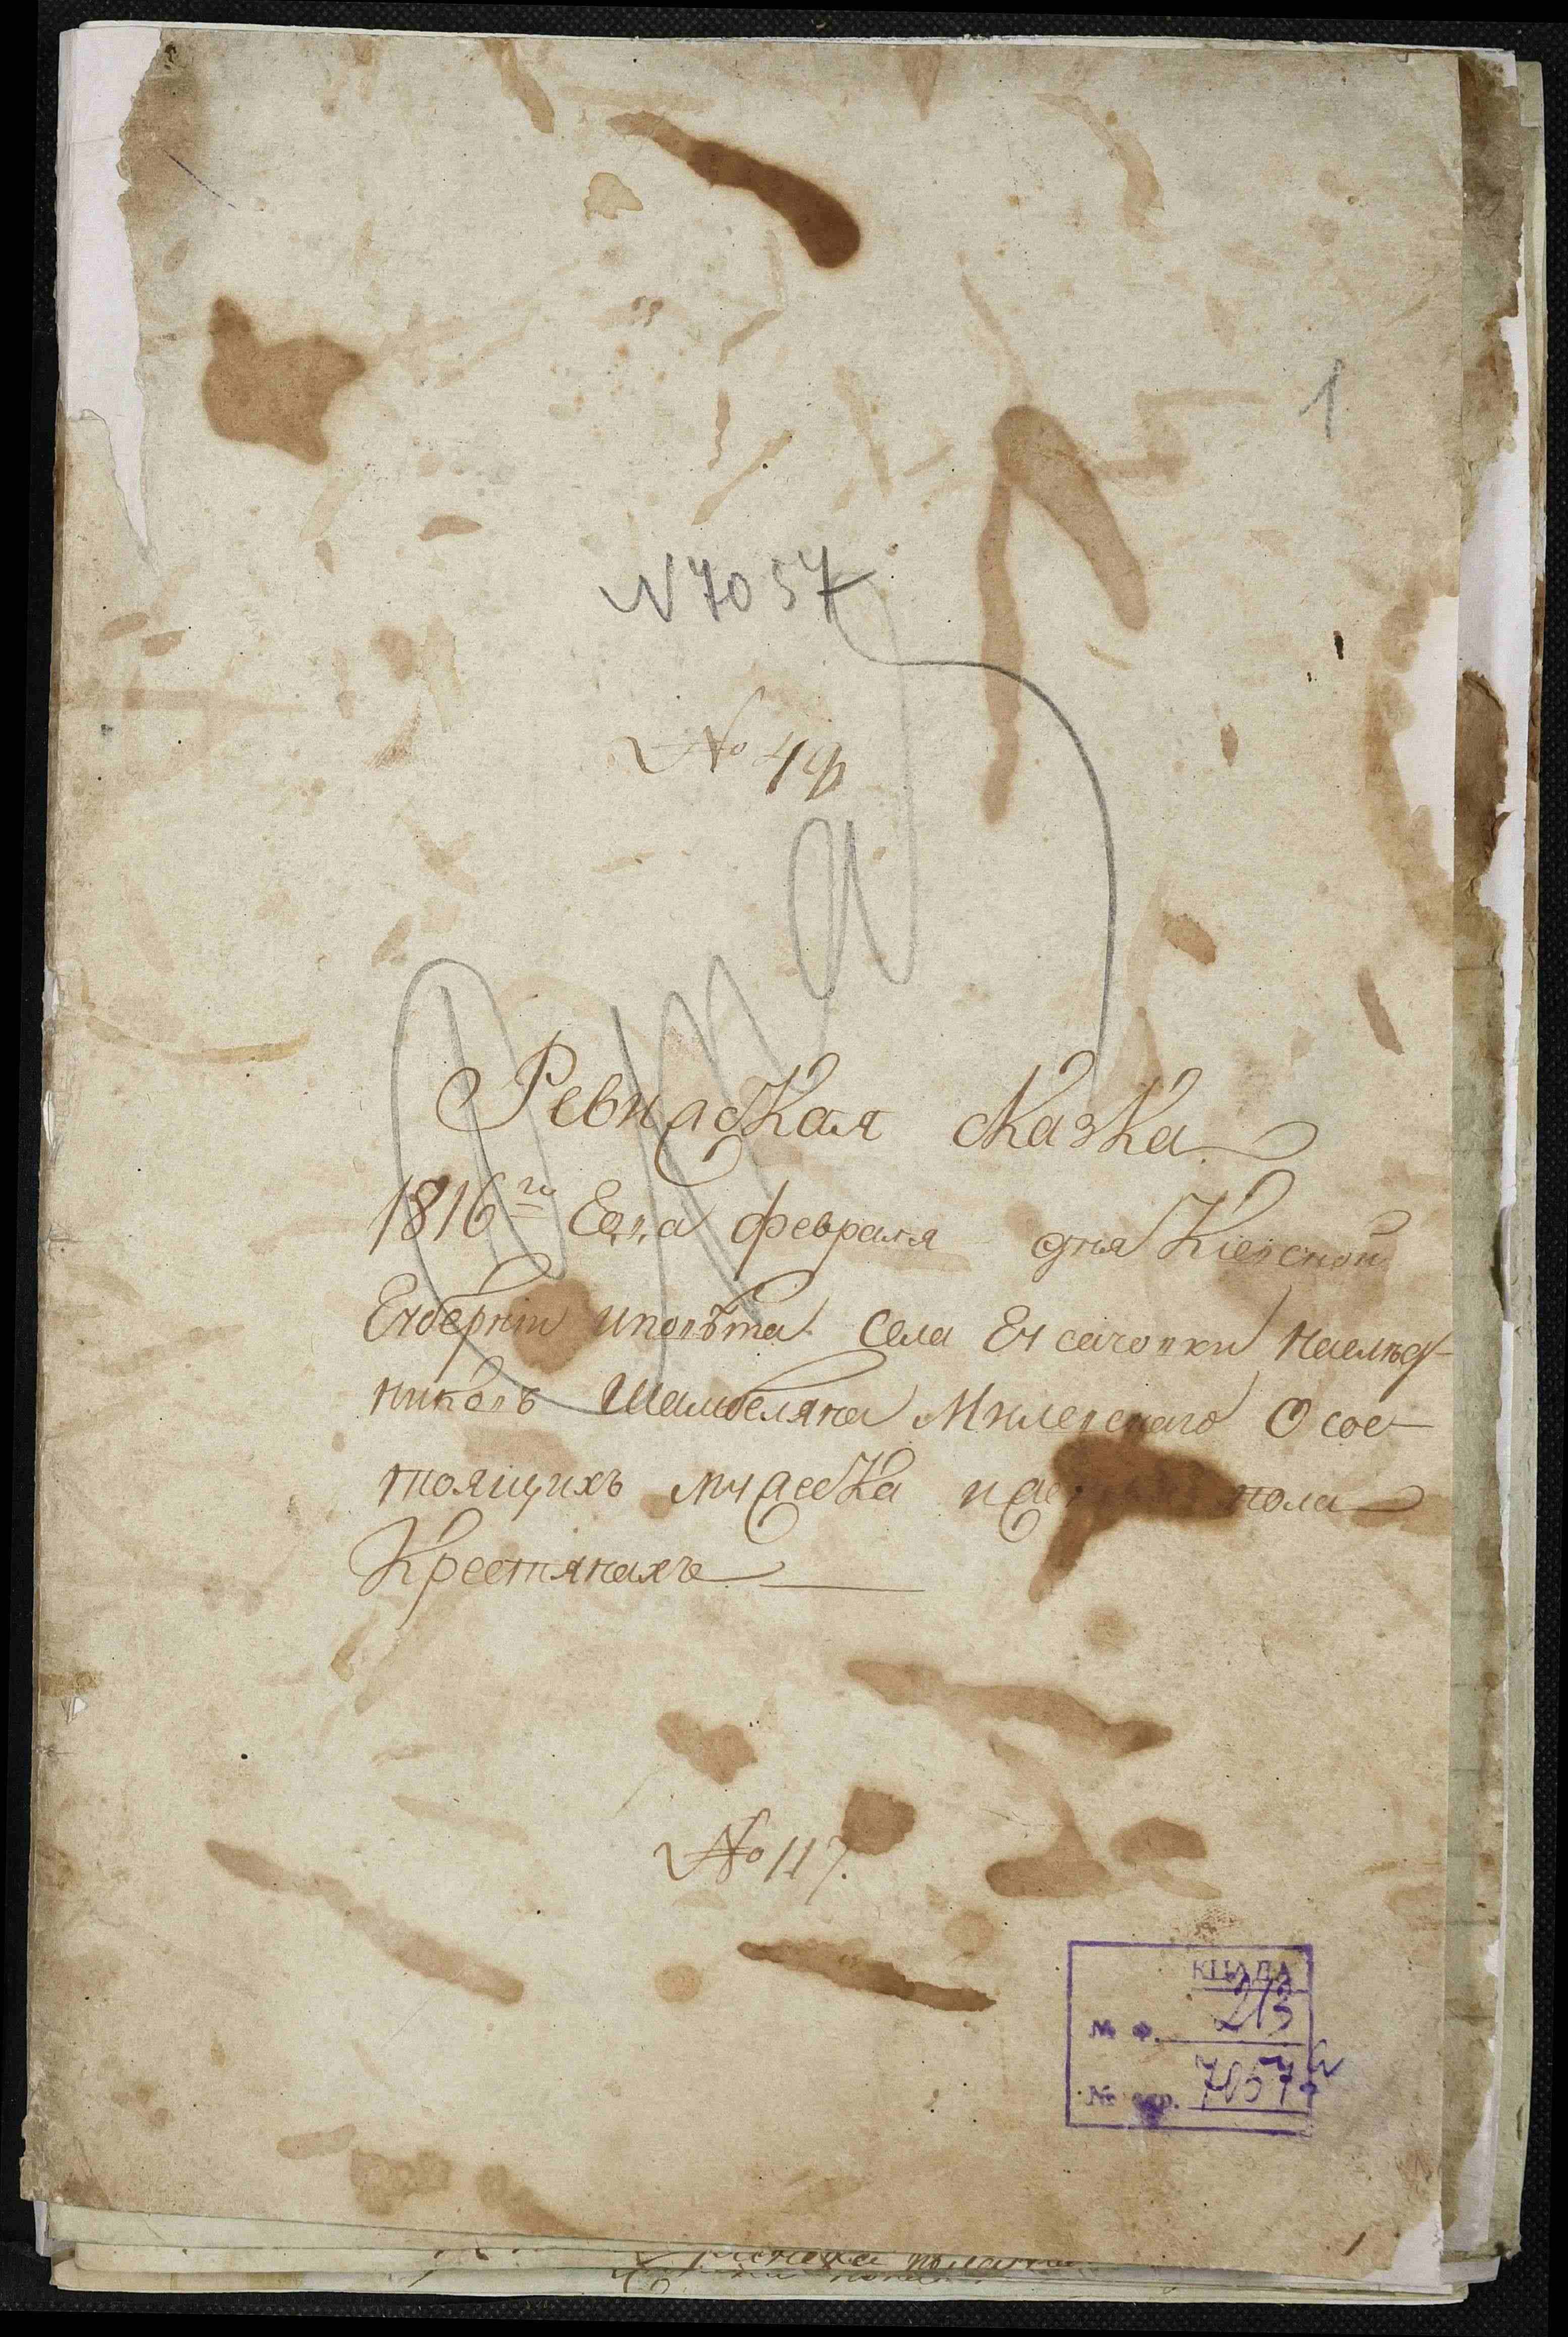 1
N 7057
№ 49
Ревизская сказка
1816го Года февраля дня Кіевской
Губерніи и повѣта села Гусачовки наслѣд-
никовъ Шамбеляна Милевскаго О сос-
тоящихъ мужеска и женска пола
Крестянахъ
№ 117.
КЦАДА
№ ф. 213
№ 7057а